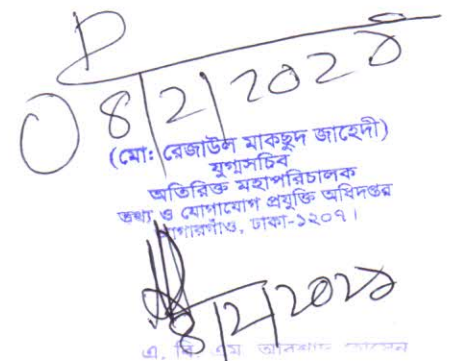 08/2/2020
(মো: রেজাউল মাকছুদ জাহেদী)
যুগ্মসচিব
অতিরিক্ত মহাপরিচালক
তথ্য ও যোগাযোগ প্রযুক্তি অধিদপ্তর
আগারগাঁও, ঢাকা-১২০৭।
8/2/202
এ. বি. এম